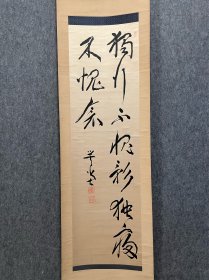 獨行不愧影独寝
不愧衾